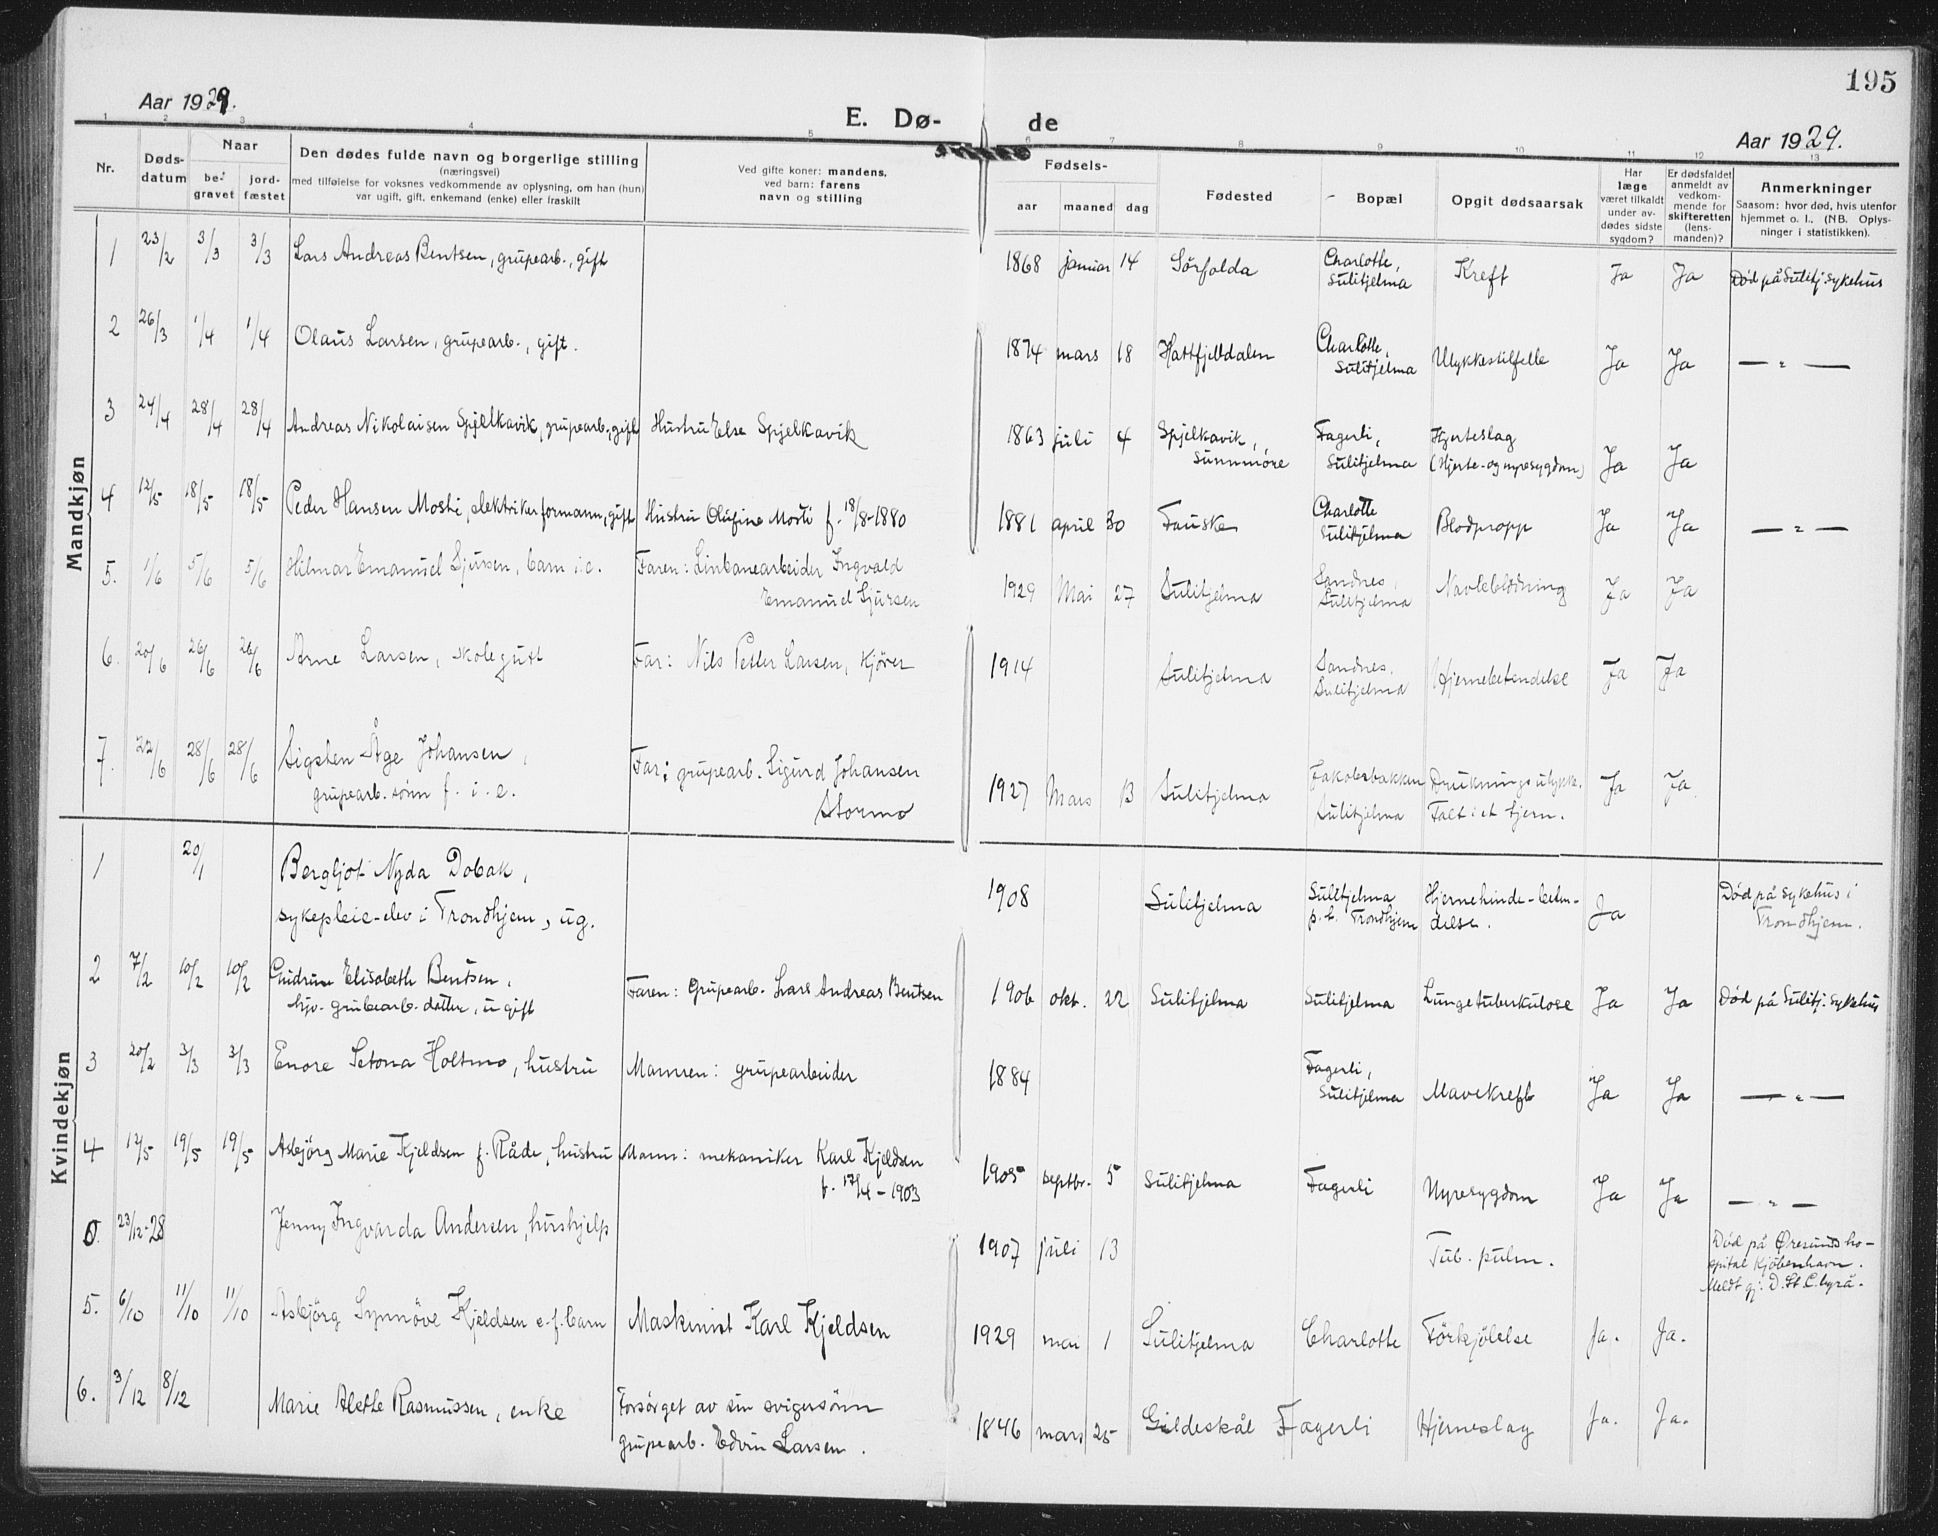 195
Aar 1929.
E. Dø- de
Aar 1929.
1 2 3 4 5 6 7 8 9 10 11 12 13
Nr.
Døds-
datum
Naar
be-
gravet
jord-
fæstet
Den dødes fulde navn og borgerlige stilling
(næringsvei)
med tilføielse for voksnes vedkommende av oplysning, om han (hun)
var ugift, gift, enkemand (enke) eller fraskilt
Ved gifte koner: mandens,
ved barn: farens
navn og stilling
Fødsels-
aar maaned dag
Fødested
Bopæl
Opgit dødsaarsak
Har
læge
været tilkaldt
under av-
dødes sidste
sygdom?
Er dødsfaldet
anmeldt av
vedkom-
mende for
skifteretten
(lens-
manden)?
Anmerkninger
Saasom: hvor død, hvis utenfor
hjemmet o. l., (NB. Oplys-
ninger i statistikken).
Mandkjøn
1 23/2 3/3 3/3 Lars Andreas Bentsen, grupearb., gift 1868 januar 14 Sörfolda Charlotte, Kreft Ja Ja Død på Sulitj. sykehus
Sulitjelma
2 26/3 1/4 1/4 Olaus Larsen, grupearb., gift. 1874 mars 18 Hattfjelldalen Charlotte, Ulykkestilfelle Ja Ja — " —
Sulitjelma
3 24/4 28/4 28/4 Andreas Nikolaisen Spjelkavik, grupearb., gift Hustru Else Spjelkavik 1863 juli 4 Spjelkavik, Fagerli, Hjerteslag Ja Ja
Sunnmöre Sulitjelma (Hjerte- og nyresygdom)
4 12/5 18/5 18/5 Peder Hansen Mosti, elektrikerformann, gift Hustru Olufine Mosti f. 18/8-1880 1881 april 30 Fauske Charlotte Blodpropp Ja Ja — " —
Sulitjelma
5. 1/6 5/6 5/6 Hilmar Emanuel Sjursen, barn i.e. Faren: Linbanearbeider Ingvald 1929 Mai 27 Sulitjelma Sandnes, Navleblödning Ja Ja
Emanuel Sjursen Sulitjelma
6. 20/6 26/6 26/6 Arne Larsen, skolegutt Far: Nils Petter Larsen, kjörer 1914 Sulitjelma Sandnes, Hjernebetendelse Ja Ja
Sulitjelma
7. 22/6 28/6 28/6 Sigsten Åge Johansen, Far: grupearb. Sigurd Johansen 1927 Mars 13 Sulitjelma Jakobsbakken Drukningsulykke. Ja Ja
grupearb. sönn f. i. e. Stormo Sulitjelma Falt i et tjern.
Kvindekjøn
1 20/1 Bergljot Nyda Dobak, 1908 Sulitjelma Sulitjelma Hjernehinde-beten- Ja Død på sykehus i
sykepleie-elev i Trondhjem, ug. p. t. Trondhjem delse. Trondhjem.
2 7/2 10/2 10/2 Gudrun Elisabeth Bentsen, Faren: Grupearb. Lars Andreas Bentsen 1906 okt. 22 Sulitjelma Sulitjelma Lungetuberkulose Ja Ja Död på Sulitj. sykehus
hjv. grubearb. datter, ugift
3 20/2 3/3 3/3 Enore Setona Holtmo, hustru Mannen: grupearbeider 1884 Fagerli, Mavekreft Ja Ja — " —
Sulitjelma
4 12/5 19/5 19/5 Asbjörg Marie Kjeldsen f. Råde, hustru Mann: mekaniker Karl Kjeldsen 1905 septbr. 5 Sulitjelma Fagerli Nyresygdom Ja Ja — " —
f. 17/4-1903
0 23/12-28 Jenny Ingvarda Andersen, hushjelp 1907 juli 13 Tub. pulm. Död på Øresundsho-
spital Kjöbenhavn.
Meldt gj. D. St. C. byrå.
5. 6/10 11/10 11/10 Asbjörg Synnöve Kjeldsen e.f. barn Maskinist Karl Kjeldsen 1929 mai 1 Sulitjelma Charlotte Förkjölelse Ja. Ja.
6. 3/12 8/12 Marie Alethe Rasmussen, enke Forsörget av sin svigersönn 1846 mars 25 Gildeskål Fagerli Hjerneslag Ja. Ja.
grupearb. Edvin Larsen.